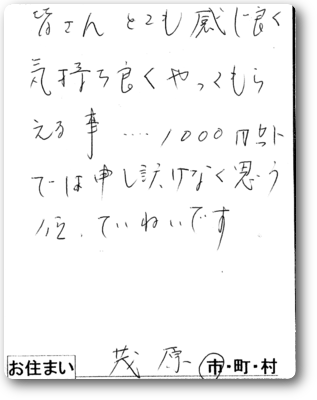 皆さん とても 感じ良く
気持ち良くやってもら
える事 … 1000円以下
では申し訳けなく思う
位、ていねいです
お住まい 茂原 市・町・村